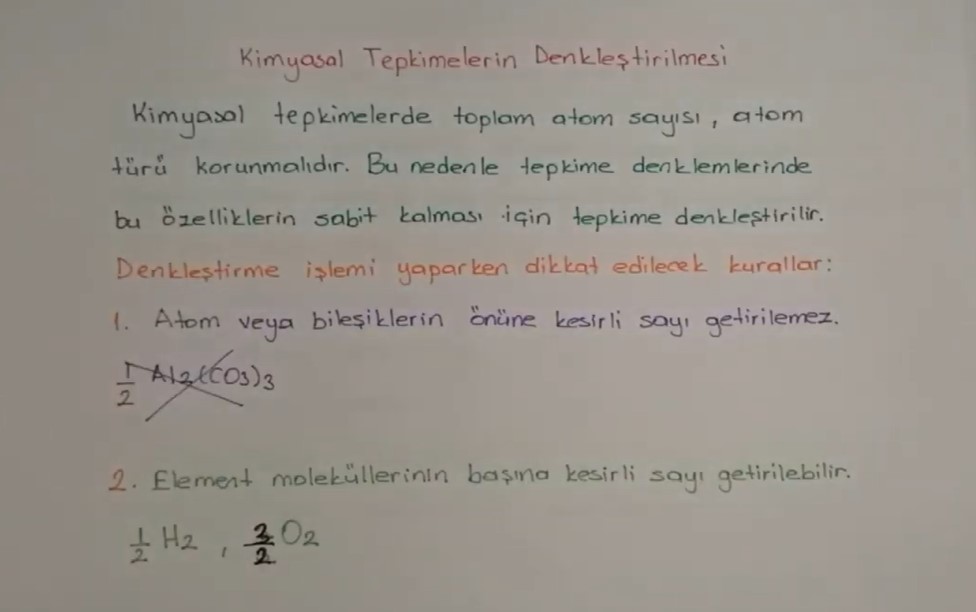 Kimyasal Tepkimelerin Denkleştirilmesi
Kimyasal tepkimelerde toplam atom sayısı, atom
türü korunmalıdır. Bu nedenle tepkime denklemlerinde
bu özelliklerin sabit kalması için tepkime denkleştirilir.
Denkleştirme işlemi yaparken dikkat edilecek kurallar:
1. Atom veya bileşiklerin önüne kesirli sayı getirilemez.
1/2 Al2(CO3)3
2. Element moleküllerinin başına kesirli sayı getirilebilir.
1/2 H2, 3/2 O2